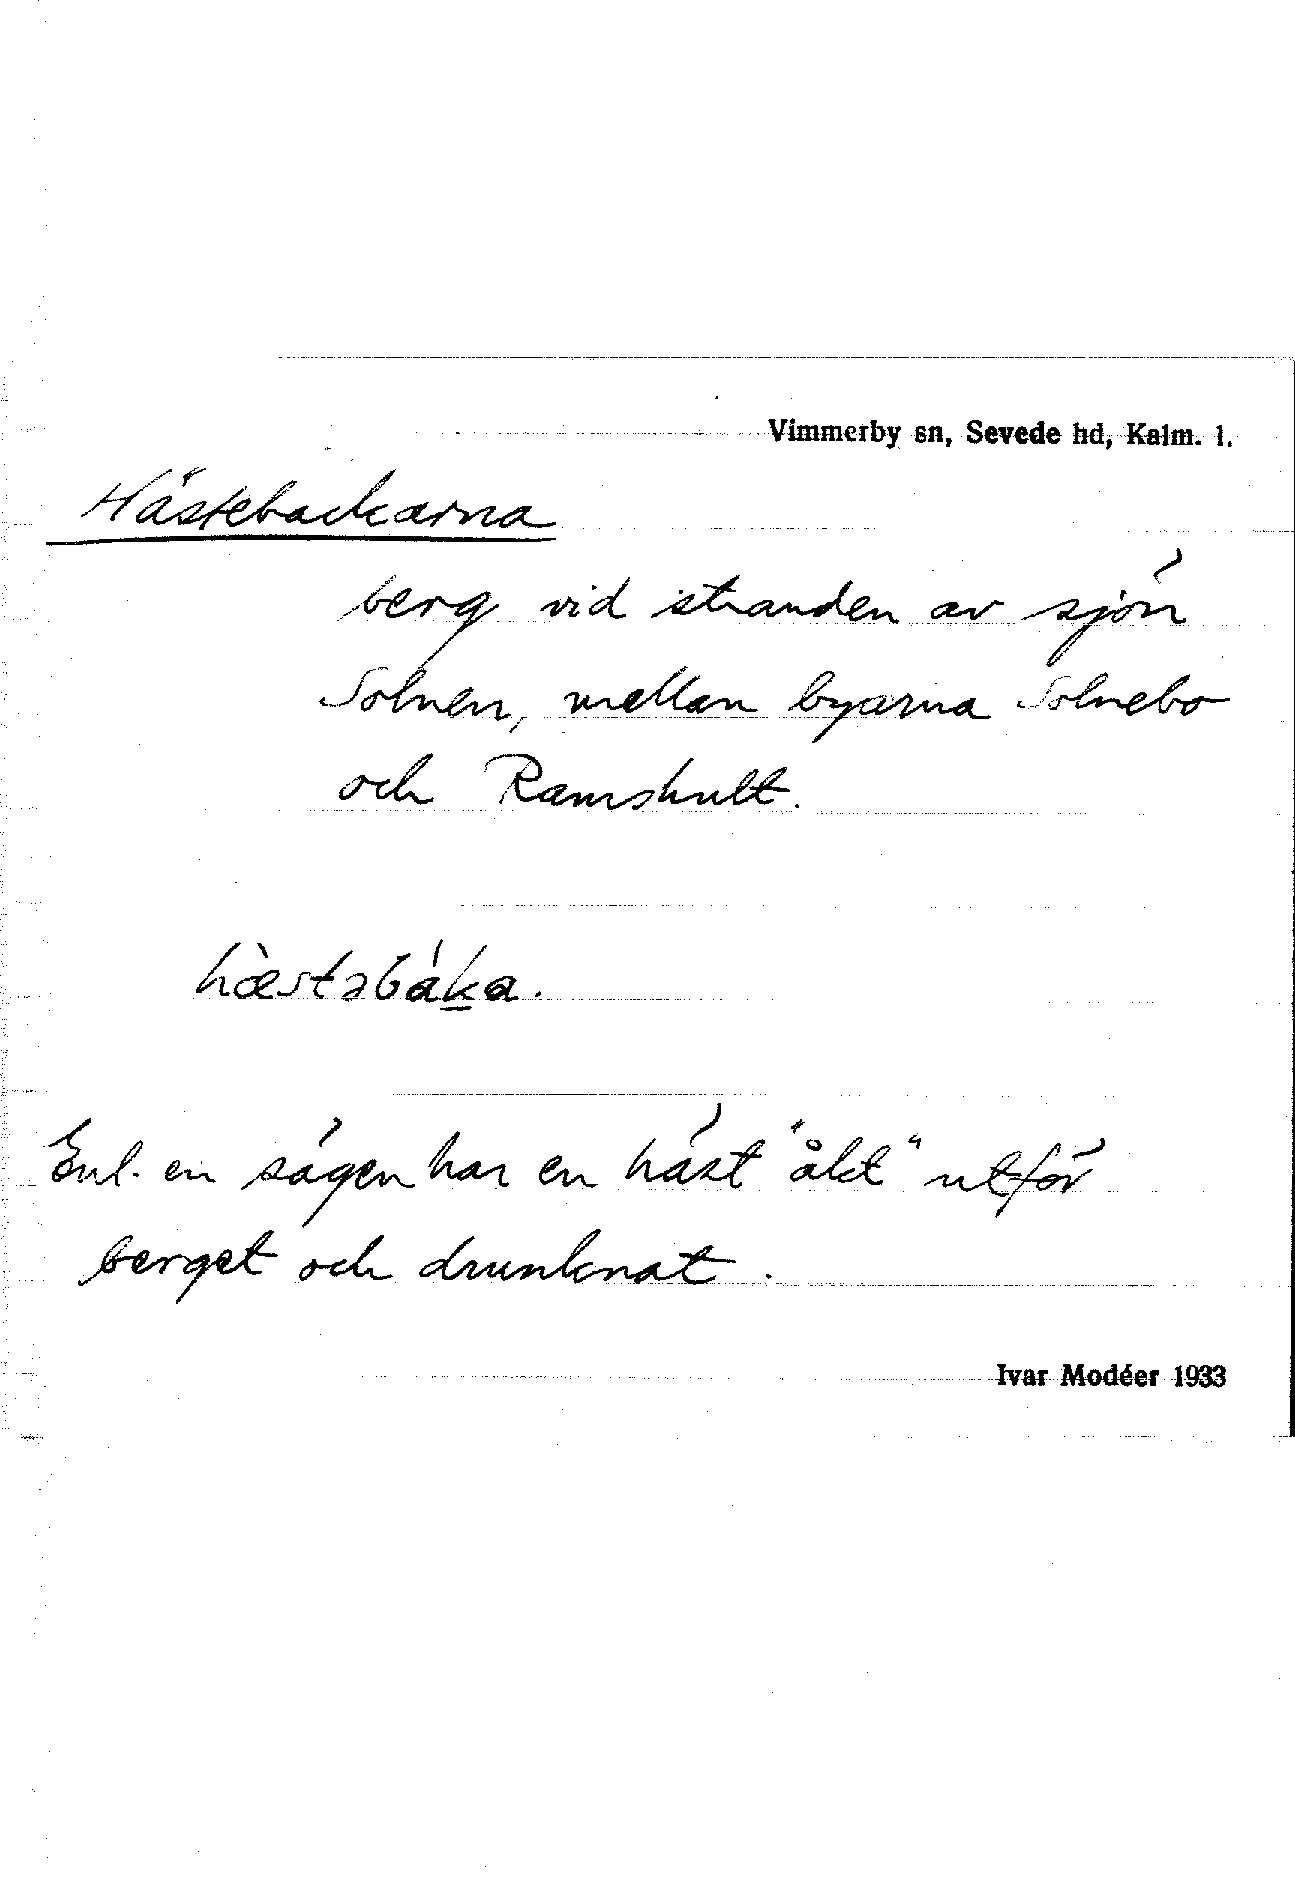 Vimmerby sn, Sevede hd, Kalm. l.
Hästebackarna
berg vid stranden av sjön
Solnen, mellan byarna Solnebo
och Ramshult.
hæ̀stəbáka.
Enl. en sägen har en häst "åkt" utför
berget och drunknat.
Ivar Modéer 1933